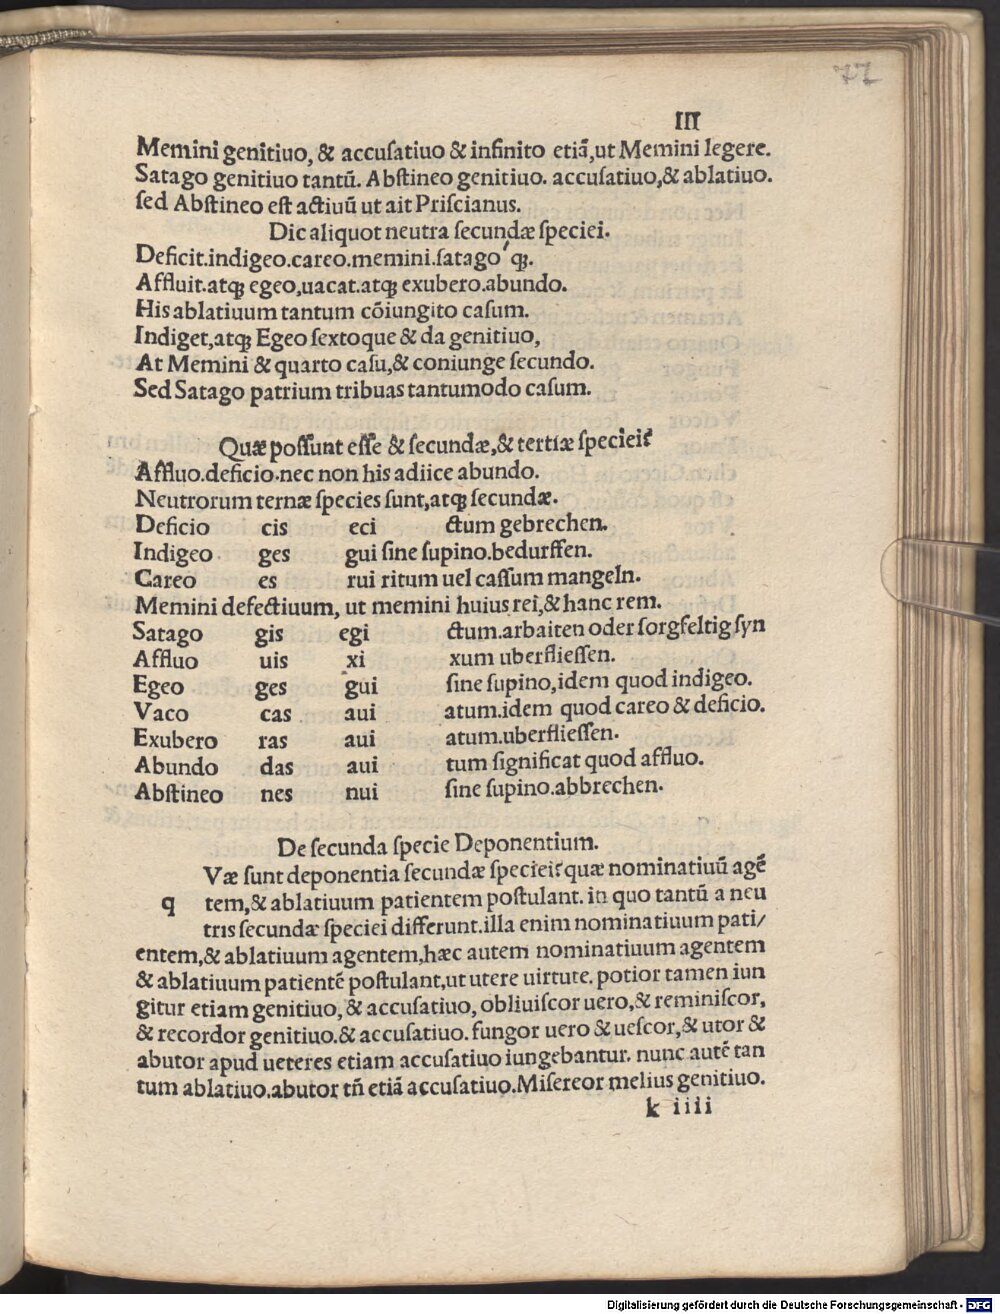 77
III
Memini genitiuo, & accuſatiuo & infinito etiã, ut Memini legere.
Satago genitiuo tantũ. Abſtineo genitiuo. accuſatiuo, & ablatiuo.
ſed Abſtineo eſt actiuũ ut ait Priſcianus.
Dic aliquot neutra ſecundæ ſpeciei.
Deficit.indigeo.careo.memini.ſatago'q;.
Affluit.atq; egeo,uacat.atq; exubero.abundo.
His ablatiuum tantum cõiungito caſum.
Indiget,atq; Egeo ſextoque & da genitiuo,
At Memini & quarto caſu,& coniunge ſecundo.
Sed Satago patrium tribuas tantumodo caſum.
Quæ poſſunt eſſe & ſecundæ,& tertiæ ſpeciei?
Affluo.deficio.nec non his adiice abundo.
Neutrorum ternæ ſpecies ſunt,atq; ſecundæ.
Deficio cis eci ctum gebrechen.
Indigeo ges gui ſine ſupino.bedurffen.
Careo es rui ritum uel caſſum mangeln.
Memini defectiuum, ut memini huius rei,& hanc rem.
Satago gis egi ctum.arbaiten oder ſorgfeltig ſyn
Affluo uis xi xum uberflieſſen.
Egeo ges gui ſine ſupino,idem quod indigeo.
Vaco cas aui atum.idem quod careo & deficio.
Exubero ras aui atum.uberflieſſen.
Abundo das aui tum ſignificat quod affluo.
Abſtineo nes nui ſine ſupino.abbrechen.
De ſecunda ſpecie Deponentium.
Væ ſunt deponentia ſecundæ ſpeciei? quæ nominatiuũ agẽ
q tem,& ablatiuum patientem poſtulant. in quo tantũ a neu
tris ſecundæ ſpeciei differunt.illa enim nominatiuum pati/
entem,& ablatiuum agentem,hæc autem nominatiuum agentem
& ablatiuum patientẽ poſtulant,ut utere uirtute. potior tamen iun
gitur etiam genitiuo, & accuſatiuo, obliuiſcor uero,& reminiſcor,
& recordor genitiuo.& accuſatiuo. fungor uero & ueſcor,& utor &
abutor apud ueteres etiam accuſatiuo iungebantur. nunc autẽ tan
tum ablatiuo.abutor tñ etiã accuſatiuo.Miſereor melius genitiuo.
k iiii
Digitalisierung gefördert durch die Deutsche Forschungsgemeinschaft - DFG